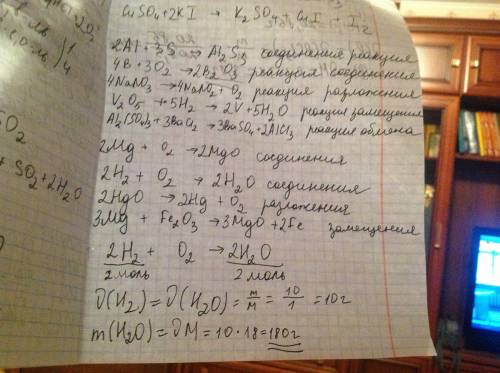 CuSO4+2KI → K2SO4+CuI + I2
2Al + 3S → Al2S3 соединения реакция
4B + 3O2 → 2B2O3 реакция соединения
4NaNO3 → 4NaNO2 + O2 реакция разложения
V2O5 + 5H2 → 2V + 5H2O реакция замещения
Al2(SO4)3 + 3BaCl2 → 3BaSO4 + 2AlCl3 реакция обмена
2Mg + O2 → 2MgO соединения
2H2 + O2 → 2H2O соединения
2HgO → 2Hg + O2 разложения
3Mg + Fe2O3 → 3MgO + 2Fe замещения
2H2 + O2 → 2H2O
2 моль 2 моль
υ(H2) = υ(H2O) = m/M = 10/1 = 10г
m(H2O) = υM = 10·18 = 180г
+ SO2 + 2H2O